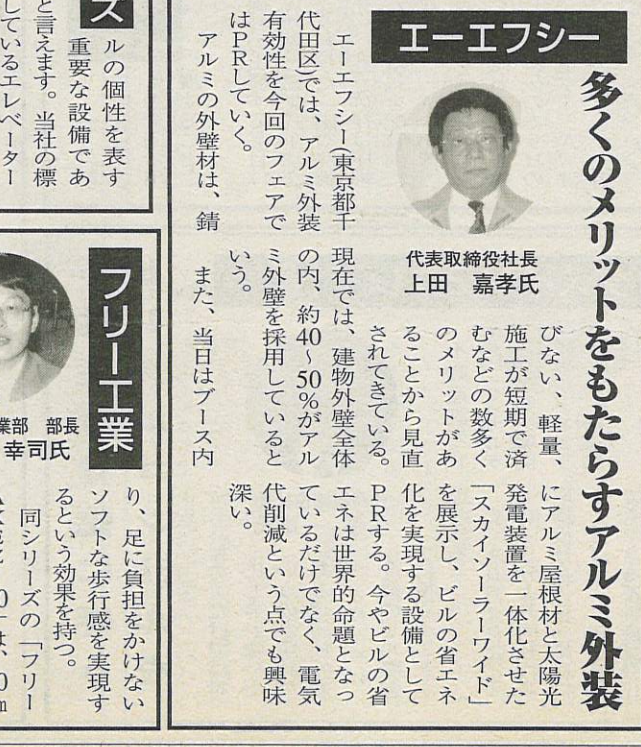 エーエフシー
多くのメリットをもたらすアルミ外装
代表取締役社長
上田 嘉孝氏
エーエフシー(東京都千
代田区)では、アルミ外装
有効性を今回のフェアで
はPRしていく。
アルミの外壁材は、錆
びない、軽量、
施工が短期で済
むなどの数多く
のメリットがあ
ることから見直
されてきている。
現在では、建物外壁全体
の内、約40~50%がアル
ミ外壁を採用していると
いう。
また、当日はブース内
にアルミ屋根材と太陽光
発電装置を一体化させた
「スカイソーラーワイド」
を展示し、ビルの省エネ
化を実現する設備として
PRする。今やビルの省
エネは世界的命題となっ
ているだけでなく、電気
代削減という点でも興味
深い。
ス
ルの個性を表す
重要な設備であ
と言えます。当社の標
しているエレベーター
フリー工業
業部 部長
幸司氏
り、足に負担をかけない
ソフトな歩行感を実現す
るという効果を持つ。
同シリーズの「フリー